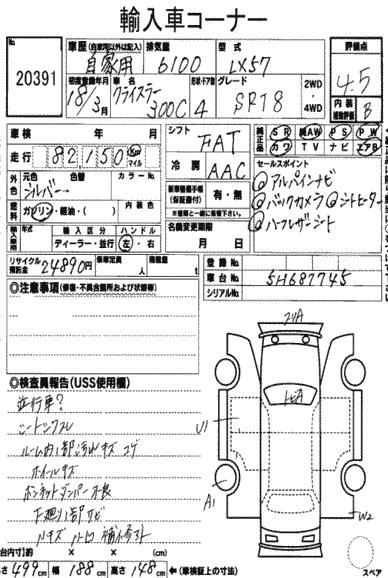 輸入車コーナー
No. 20391
車歴(自家用以外は記入) 自家用
排気量 6100
型式 LX57
評価点 4.5
初度登録年月 18/3月
車名 クライスラー 300C
形状・ドア数 4
グレード SRT8
2WD・4WD
内装 補助評価 B
車検 年 月
シフト FAT
純正品 SR 純AW PS PW
カワ TV ナビ エアB
走行 82,150 Km マイル
冷房 AAC
セールスポイント
外色 元色 色替 カラーNo.
シルバー
①アルパインナビ
②バックカメラ ③シートヒーター
④ハーフレザーシート
燃料 ガソリン・軽油・( )
内装色
新車整備手帳(保証書付) 有・無
※書類と一緒に保管下さい。
輸入車用 年式 輸入区分 ハンドル
ディーラー・並行 左・右
名義変更期限 月 日
リサイクル預託金 24890円
乗車定員 人
積載量 t
登録No.
車台No. 5H687745
シリアルNo.
◎注意事項(修復・不具合箇所および状態等)
◎検査員報告(USS使用欄)
並行車?
シートシワスレ
ルーム内1部汚れキズ コゲ
ホイールキズ
ボンネットダンパー不良
下廻り1部サビ
小キズ 小凹 補修有ト
フリA
ヒA
U1
A1
W2
台内寸)約 × × (cm)
長さ 499cm 幅 188cm 高さ 148cm ←(車検証上の寸法)
スペア